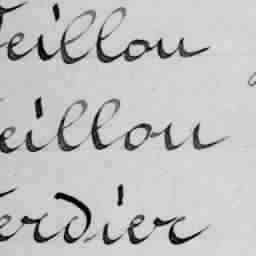 Veillou
Veillou
Verdier